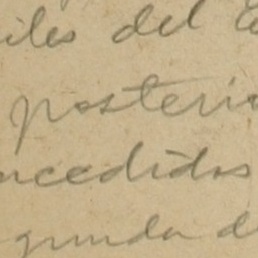 iles del E
posterio
ncedidos
gunda d